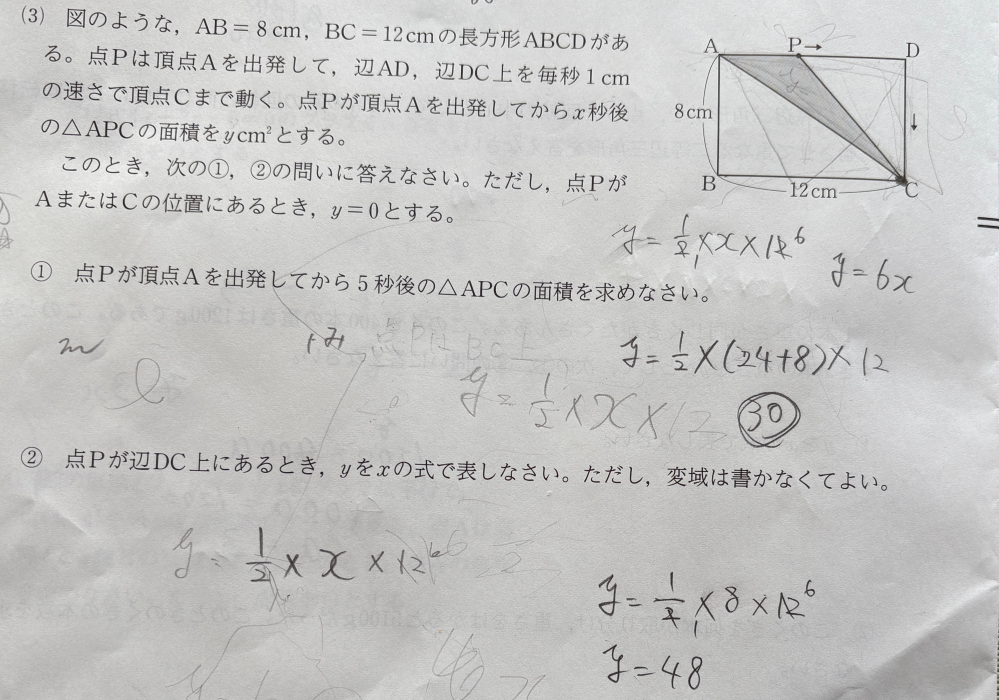 (3) 図のような，AB＝8cm，BC＝12cmの長方形ABCDがあ
る。点Pは頂点Aを出発して，辺AD，辺DC上を毎秒1cm
の速さで頂点Cまで動く。点Pが頂点Aを出発してからx秒後
の△APCの面積をycm²とする。
このとき，次の①，②の問いに答えなさい。ただし，点Pが
AまたはCの位置にあるとき，y＝0とする。
A P→ D
y
8cm
↓
B 12cm C
y = 1/2 × x × 12 6
y = 6x
① 点Pが頂点Aを出発してから5秒後の△APCの面積を求めなさい。
y = 1/2 × (24+8) × 12
点PH BC上
y = 1/2 × x × 12
30
② 点Pが辺DC上にあるとき，yをxの式で表しなさい。ただし，変域は書かなくてよい。
y = 1/2 × x × 12 6
y = 1/2 × 8 × 12 6
y = 48